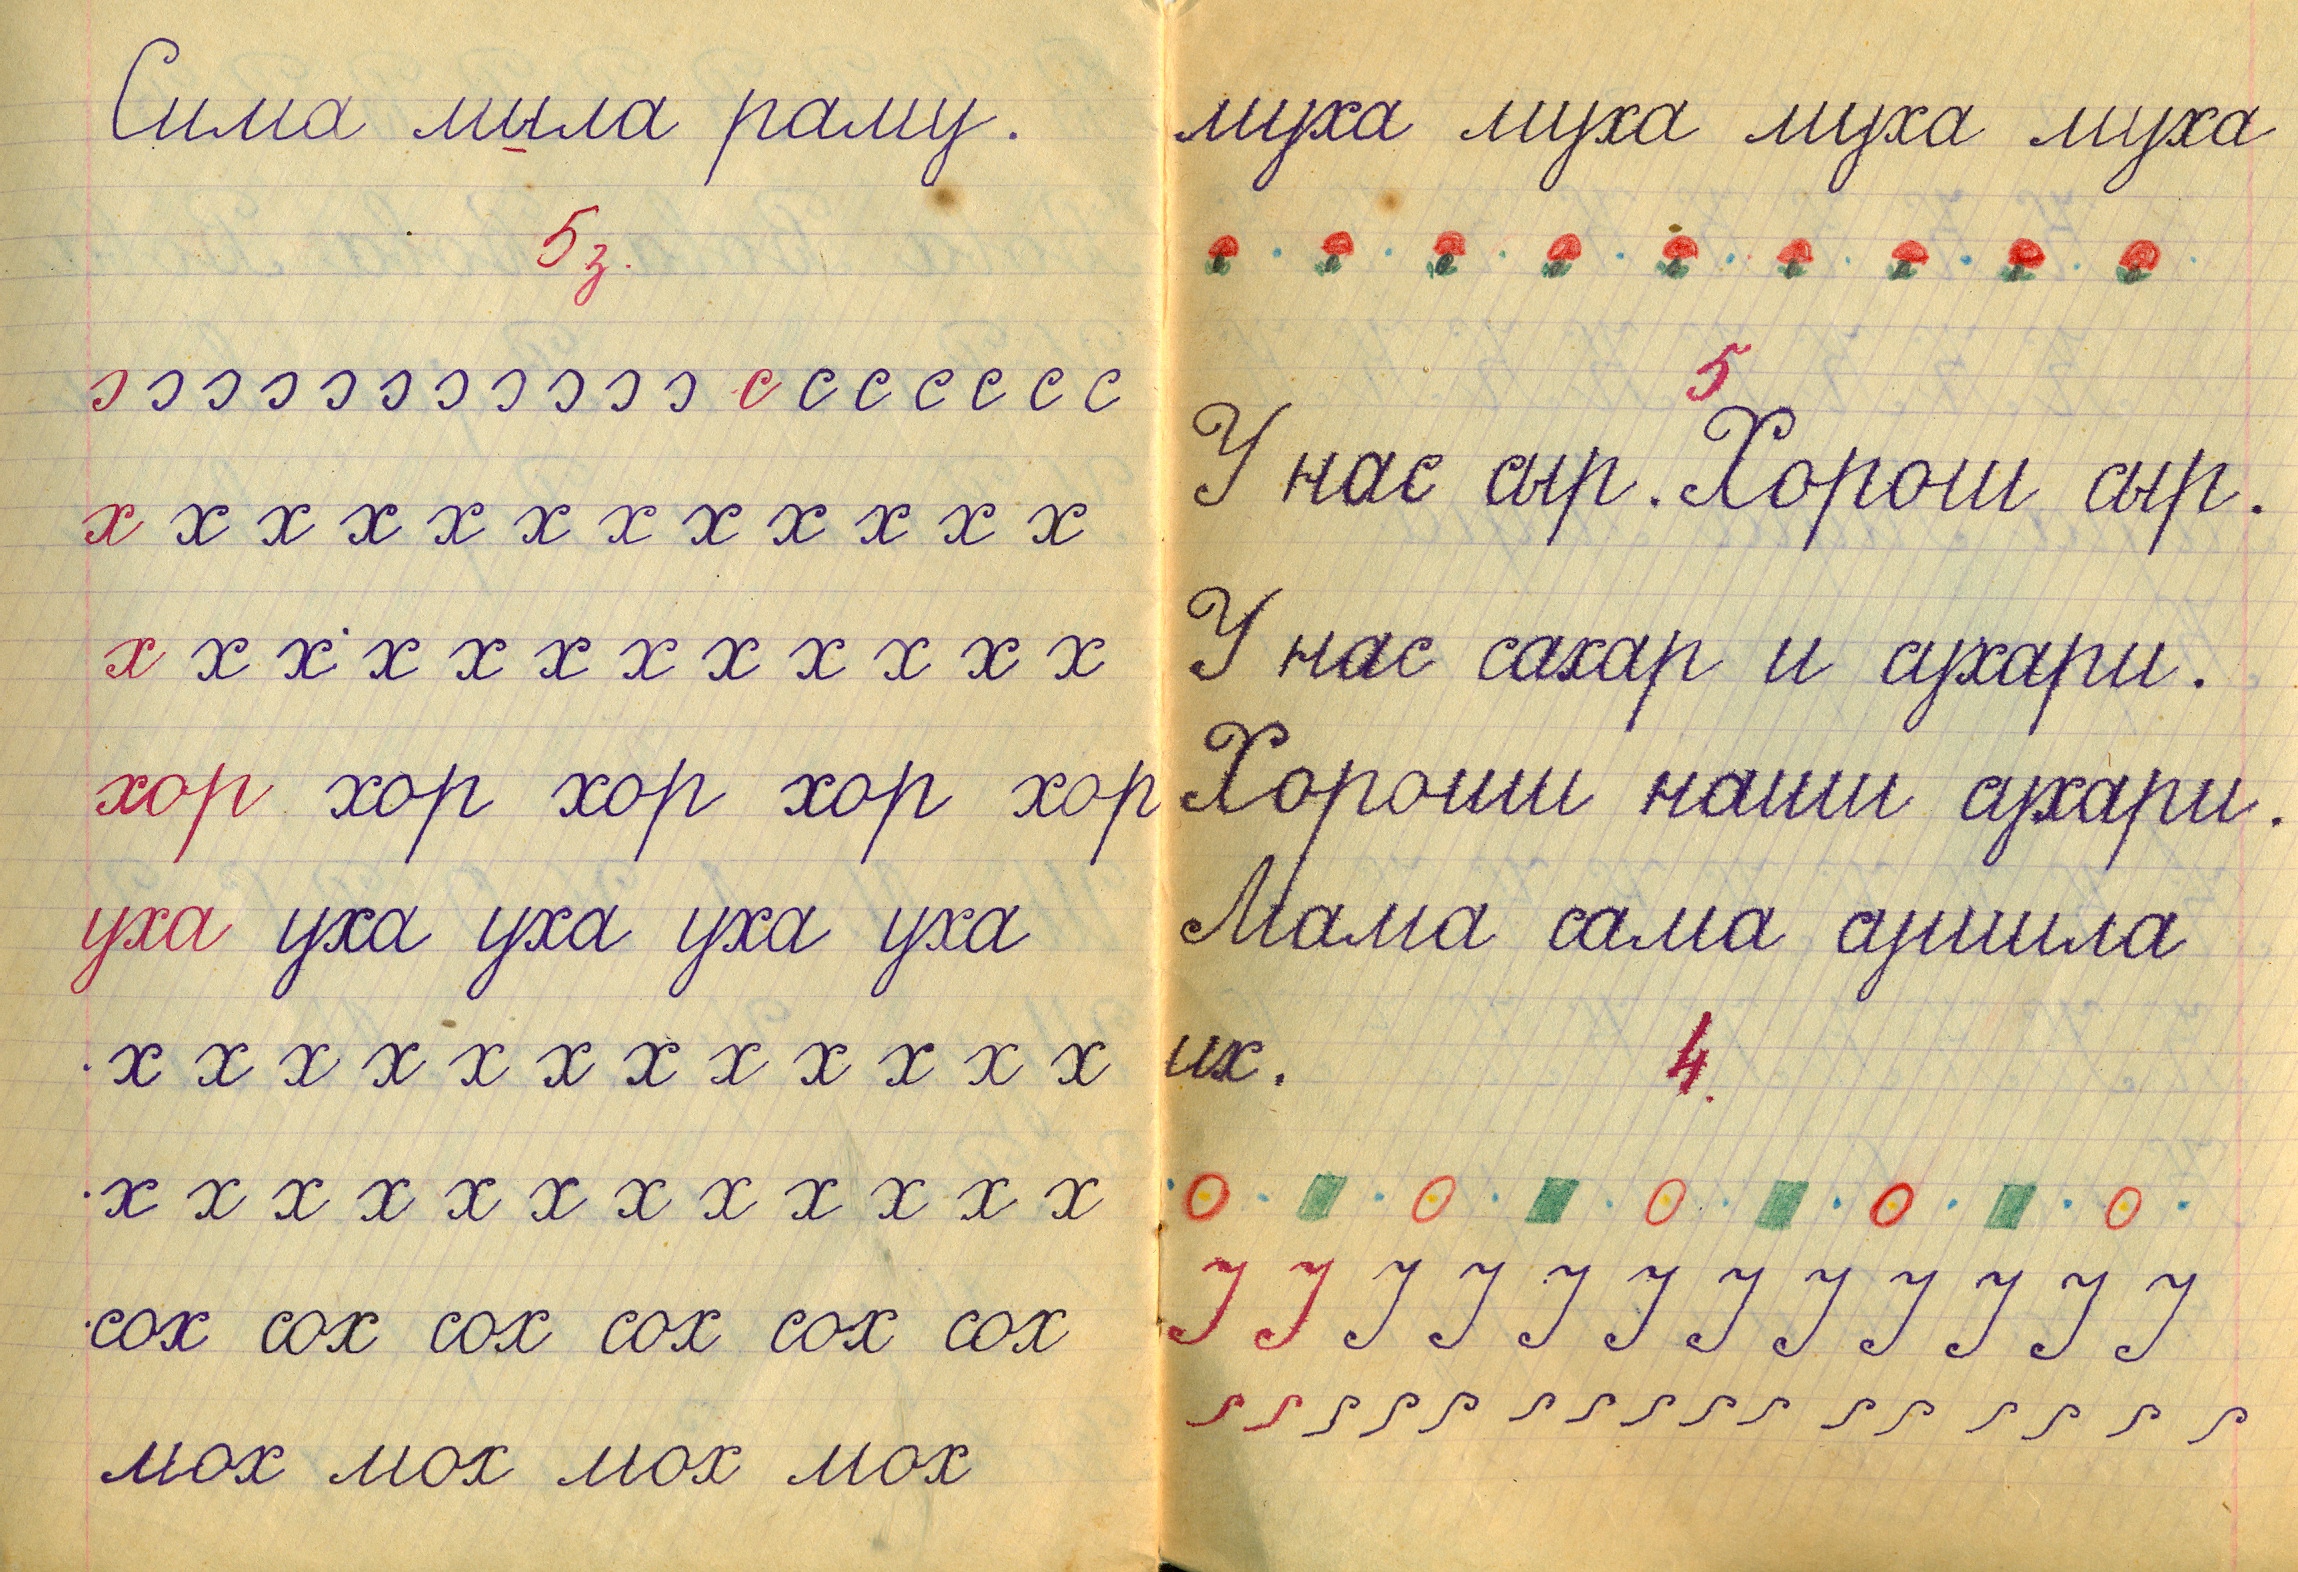 Сима мыла раму.
5 з.
ɔ ɔ ɔ ɔ ɔ ɔ ɔ ɔ ɔ ɔ ɔ с с с с с с с
х х х х х х х х х х х х
х х х х х х х х х х х х
хор хор хор хор хор
уха уха уха уха уха
х х х х х х х х х х х х
х х х х х х х х х х х х
сох сох сох сох сох сох
мох мох мох мох
муха муха муха муха
5
У нас сыр. Хорош сыр.
У нас сахар и сухари.
Хороши наши сухари.
Мама сама сушила
их.
4.